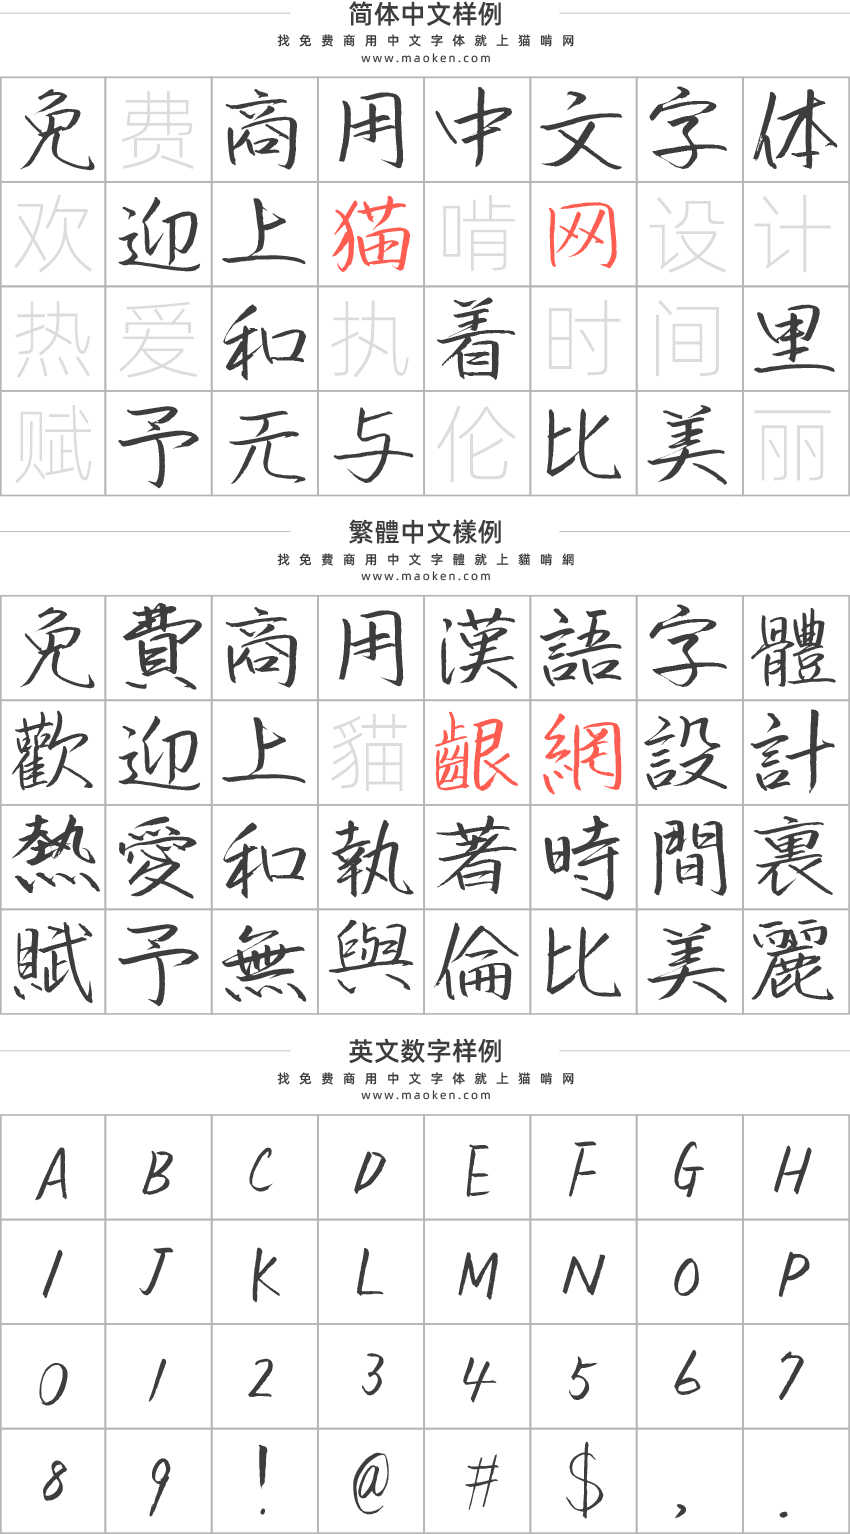 简体中文样例
找免费商用中文字体就上猫啃网
www.maoken.com
免费商用中文字体
欢迎上猫啃网设计
热爱和执着时间里
赋予无与伦比美丽
繁體中文樣例
找免費商用中文字體就上貓啃網
www.maoken.com
免費商用漢語字體
歡迎上貓齦網設計
熱愛和執著時間裏
賦予無與倫比美麗
英文数字样例
找免费商用中文字体就上猫啃网
www.maoken.com
A B C D E F G H
I J K L M N O P
0 1 2 3 4 5 6 7
8 9 ! @ # $ , .